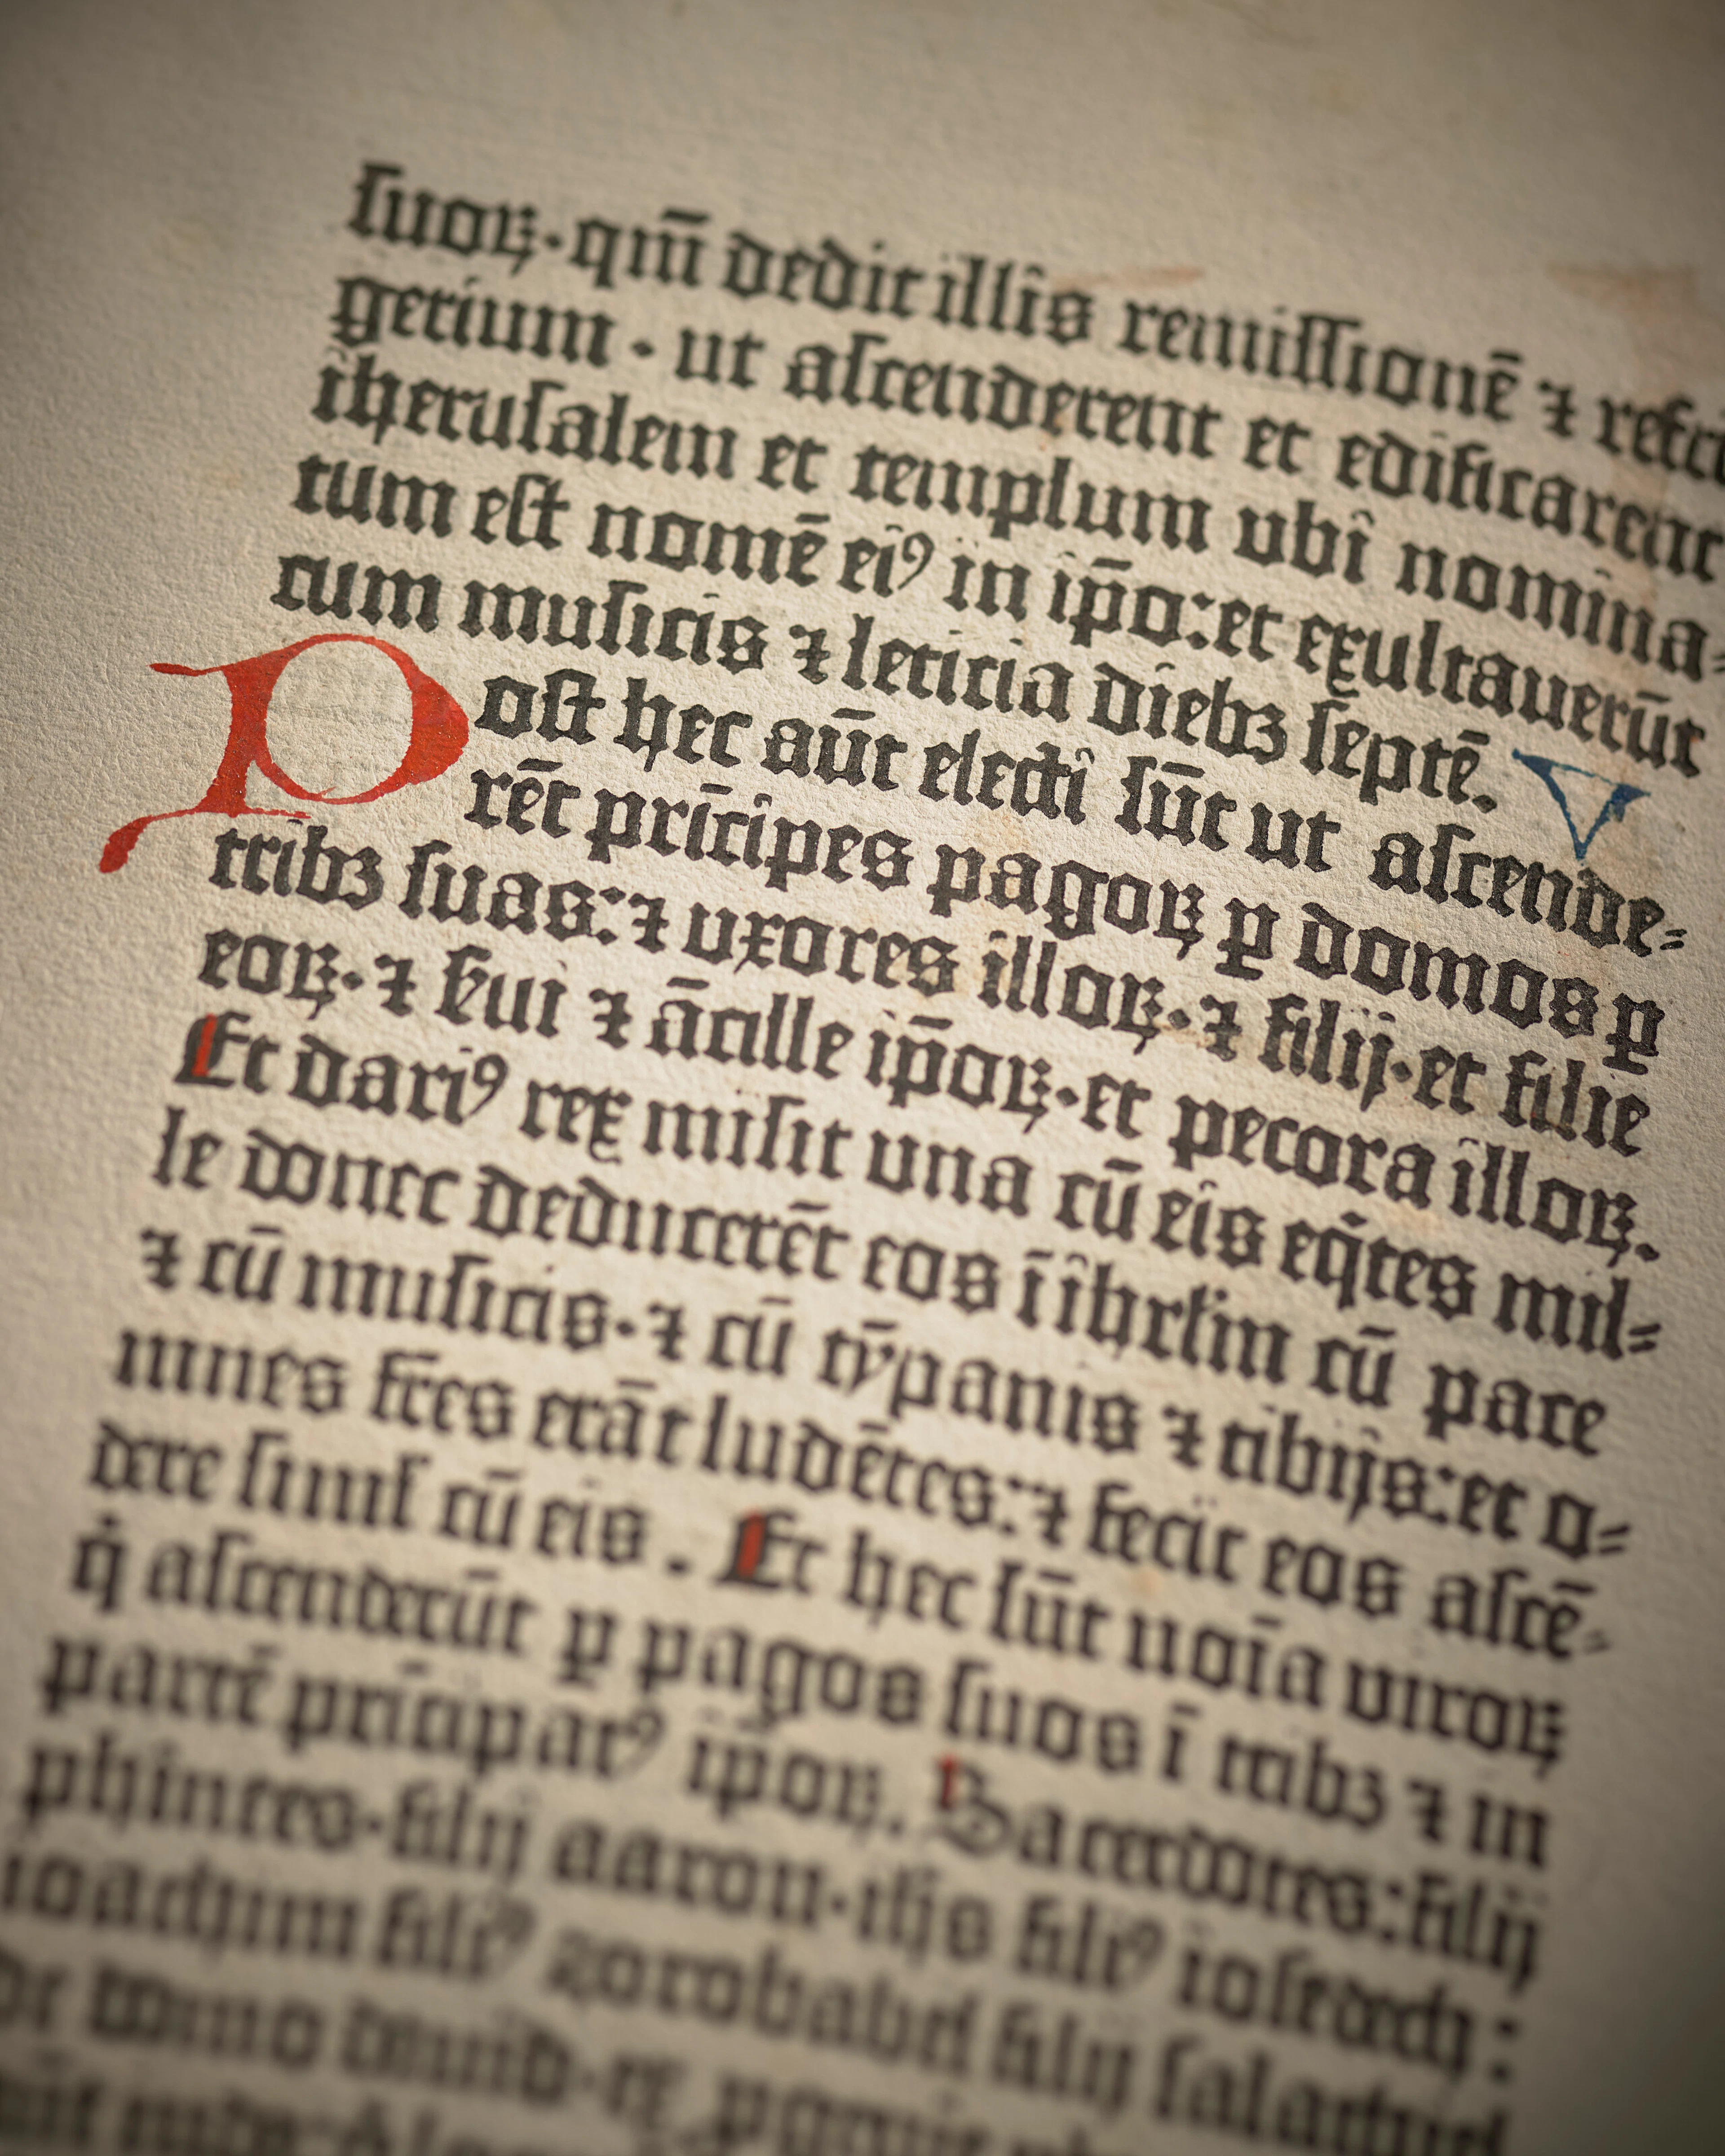 ſuoꝝ·qm̄ dedit illis remiſſionē ⁊ refri
gerium · ut aſcenderent et edificarent
iheruſalem et templum ubi nomina⸗
tum eſt nomē eiꝰ in ip̄o:et exultauerūt
cum muſicis ⁊ leticia diebꝫ ſeptē. V
Poſt hec aūt electi ſūt ut aſcende⸗
rēt prīcipes pagoꝝ ꝑ domos ꝑ
tribꝫ ſuas:⁊ uxores illoꝝ·⁊ filij·et filie
eoꝝ·⁊ ẜui ⁊ ācille ip̄oꝝ·et pecora illoꝝ.
Et dariꝰ rex miſit una cū eis eq̇tes mil⸗
le donec deducerēt eos ī ihrl̄m cū pace
⁊ cū muſicis·⁊ cū tȳpanis ⁊ tibijs:et o⸗
mnes fr̄es erāt ludētes:⁊ fecit eos aſcē⸗
dere ſimł cū eis . Et hec ſūt noīa uiroꝝ
q̇ aſcenderūt ꝑ pagos ſuos ī tribꝫ ⁊ in
partē prīcipatꝰ ip̄oꝝ. Sacerdotes:filij
phinees·filij aaron·iħs filiꝰ ioſedech:
ioachim filiꝰ zorobabel filij ſalathiel
de domo dauid·ex